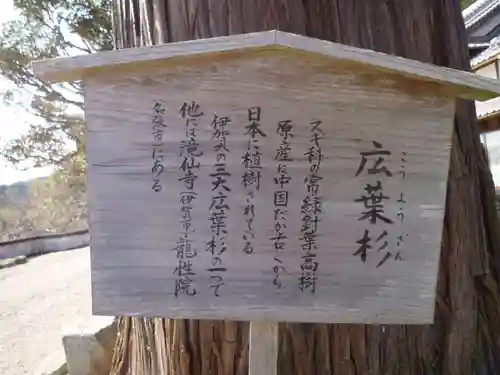 広葉杉
こうようざん
スギ科の常緑針葉高樹
原産は中国だが古くから
日本に植樹されている
伊賀の三大広葉杉の一つで
他には滝仙寺(伊賀市)龍性院
(名張市)にある